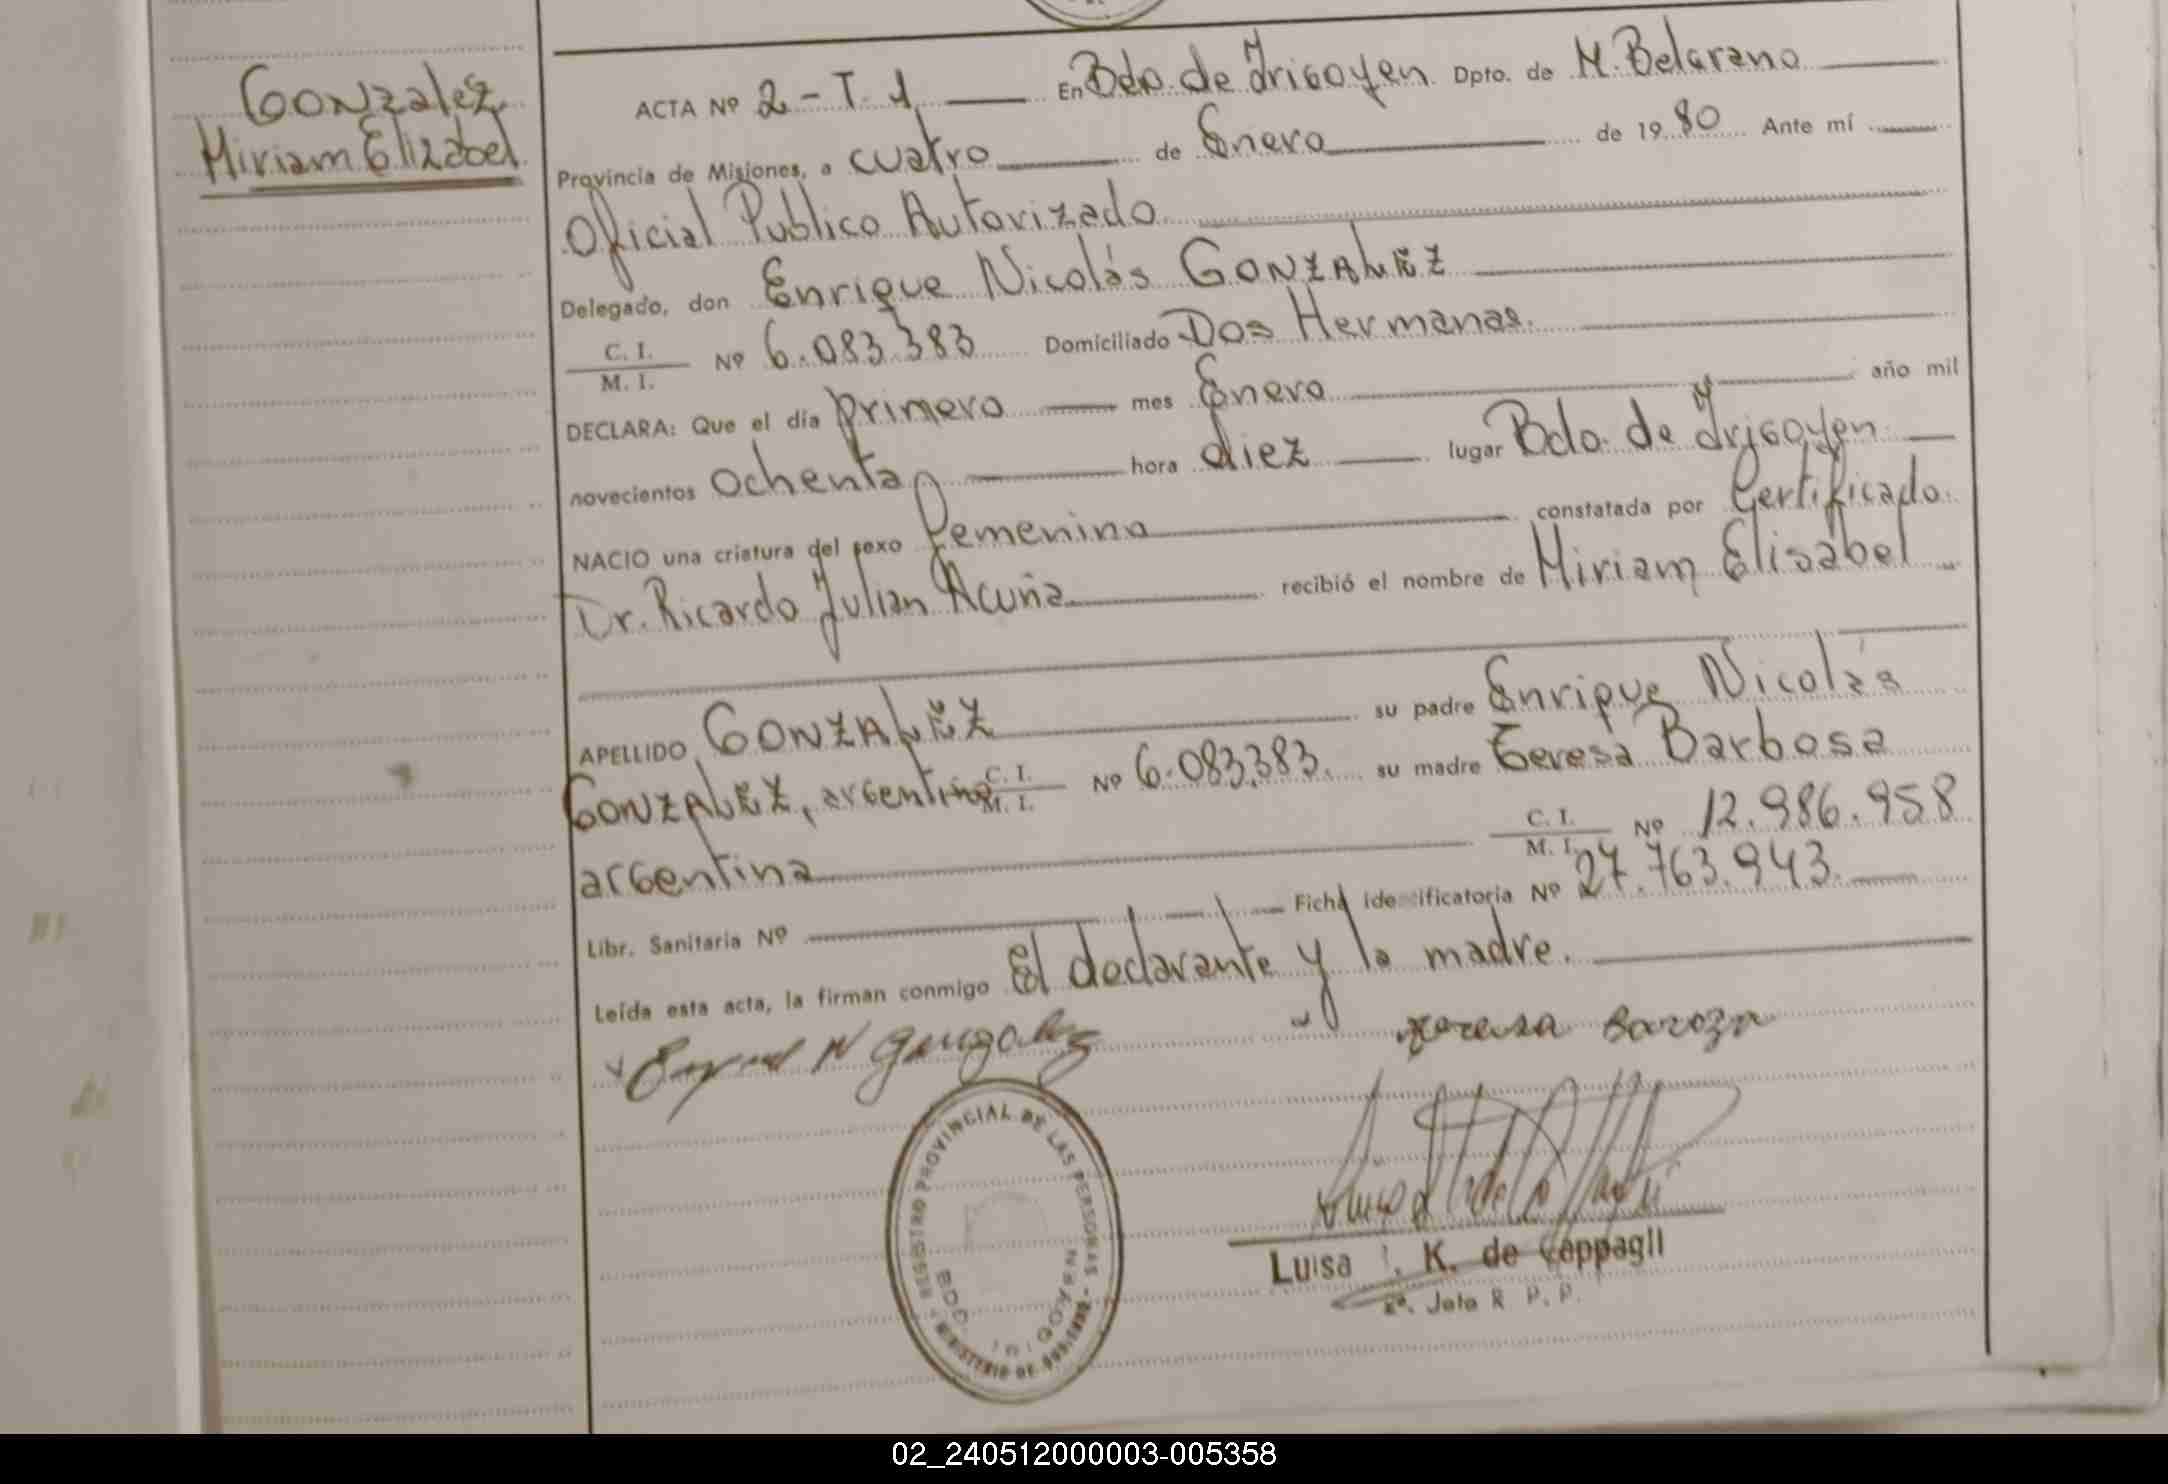 Gonzalez
Miriam Elizabel
ACTA Nº 2-T.1 En Bdo. de Irigoyen Dpto. de M. Belgrano
Provincia de Misiones, a cuatro de Enero de 1980 Ante mí
Oficial Publico Autorizado
Delegado, don Enrique Nicolás GONZALEZ
C. I. / M. I. Nº 6.083.383 Domiciliado Dos Hermanas.
DECLARA: Que el día primero mes Enero año mil
novecientos ochenta hora diez lugar Bdo. de Irigoyen
NACIO una criatura del sexo femenino constatada por Certificado
Dr. Ricardo Julian Acuña recibió el nombre de Miriam Elisabel
APELLIDO GONZALEZ su padre Enrique Nicolás
GONZALEZ, argentino C. I. / M. I. Nº 6.083.383. su madre Teresa Barbosa
argentina C. I. / M. I. Nº 12.986.958
Libr. Sanitaria Nº Ficha identificatoria Nº 27.763.943.
Leída esta acta, la firman conmigo El declarante y la madre.
N Gonzalez Teresa
REGISTRO PROVINCIAL DE LAS PERSONAS - MINISTERIO DE GOBIERNO
BDO. IRIGOYEN
Luisa K. de Coppagli
R. P. P.
02_240512000003-005358